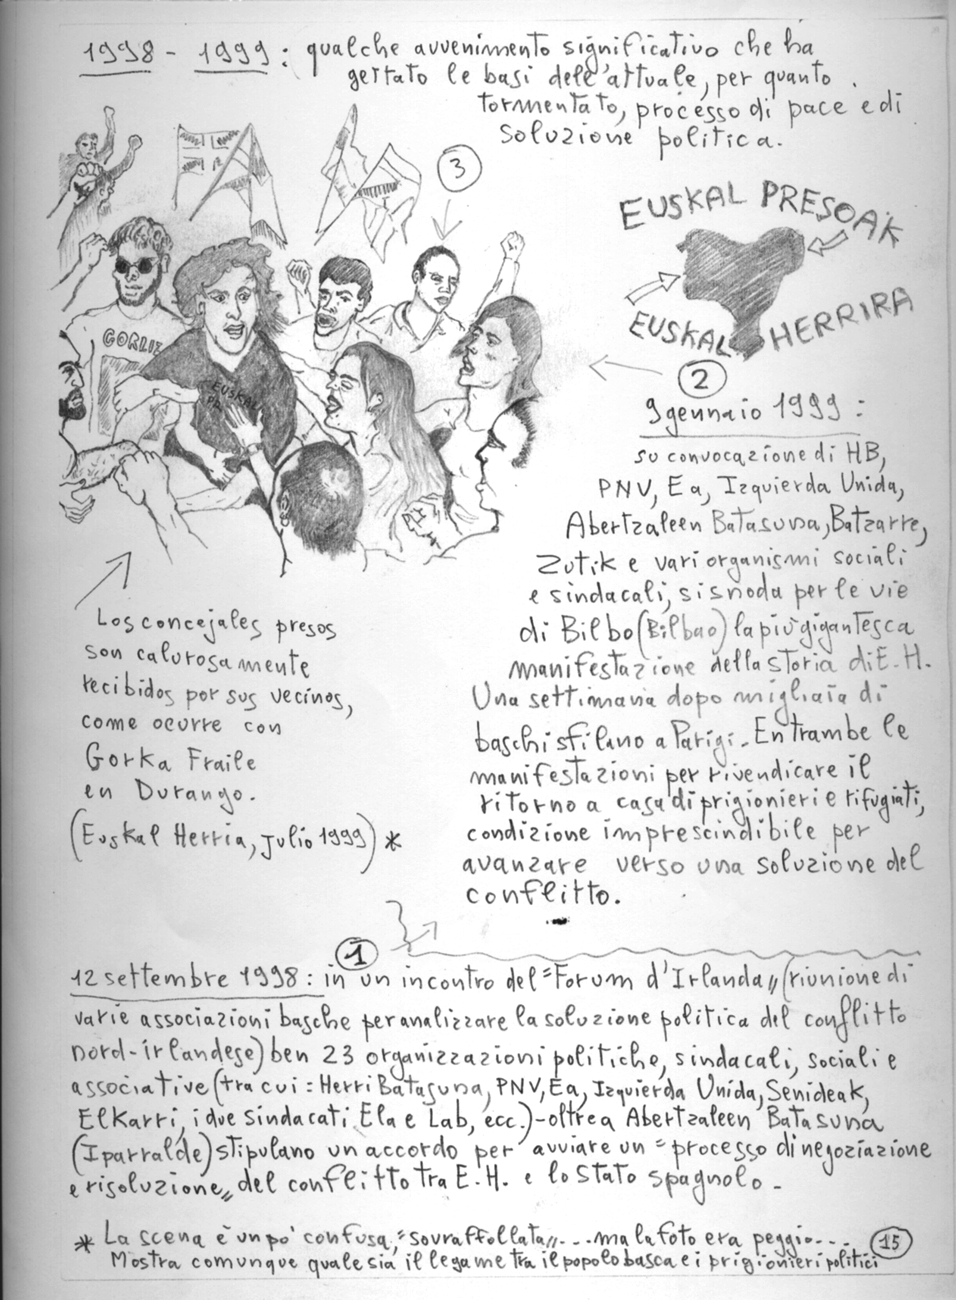 1998 - 1999 : qualche avvenimento significativo che ha
gettato le basi dell'attuale, per quanto
tormentato, processo di pace e di
soluzione politica.
3
EUSKAL PRESOAK
EUSKAL HERRIRA
GORLIZ
EUSKAL
2
9 gennaio 1999 :
su convocazione di HB,
PNV, Ea, Izquierda Unida,
Abertzaleen Batasuna, Batzarre,
Zutik e vari organismi sociali
e sindacali, si snoda per le vie
di Bilbo (Bilbao) la più gigantesca
manifestazione della storia di E.H.
Una settimana dopo migliaia di
baschi sfilano a Parigi. Entrambe le
manifestazioni per rivendicare il
ritorno a casa di prigionieri e rifugiati,
condizione imprescindibile per
avanzare verso una soluzione del
conflitto.
Los concejales presos
son calurosamente
recibidos por sus vecinos,
come ocurre con
Gorka Fraile
en Durango.
(Euskal Herria, julio 1999) *
1
12 settembre 1998 : in un incontro del "Forum d'Irlanda" (riunione di
varie associazioni basche per analizzare la soluzione politica del conflitto
nord-irlandese) ben 23 organizzazioni politiche, sindacali, sociali e
associative (tra cui : Herri Batasuna, PNV, Ea, Izquierda Unida, Senideak,
Elkarri, i due sindacati Ela e Lab, ecc.) - oltre a Abertzaleen Batasuna
(Iparralde) stipulano un accordo per avviare un "processo di negoziazione
e risoluzione" del conflitto tra E.H. e lo stato spagnolo.
* La scena è un po' confusa, "sovraffollata"... ma la foto era peggio....
Mostra comunque quale sia il legame tra il popolo basca e i prigionieri politici
15